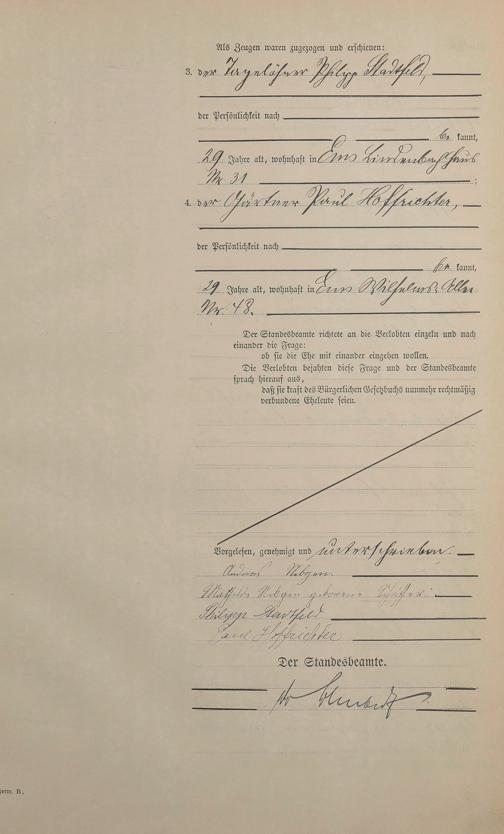 Als Zeugen waren zugezogen und erschienen:
3. der Tagelöhner Philipp Stadtfeld,
der Persönlichkeit nach
be kannt,
29 Jahre alt, wohnhaft in Ems Lindenbach Haus
Nr. 31 ;
4. der Gärtner Paul Hoffrichter,
der Persönlichkeit nach
be kannt,
29 Jahre alt, wohnhaft in Ems Wilhelms-Allee
Nr. 48.
Der Standesbeamte richtete an die Verlobten einzeln und nach
einander die Frage:
ob sie die Ehe mit einander eingehen wollen.
Die Verlobten bejahten diese Frage und der Standesbeamte
sprach hierauf aus,
daß sie kraft des Bürgerlichen Gesetzbuchs nunmehr rechtmäßig
verbundene Eheleute seien.
Vorgelesen, genehmigt und unterschrieben.
Andreas Nebgen.
Mathilde Nebgen geborene Schäfer.
Philipp Stadtfeld
Paul Hoffrichter
Der Standesbeamte.
B.